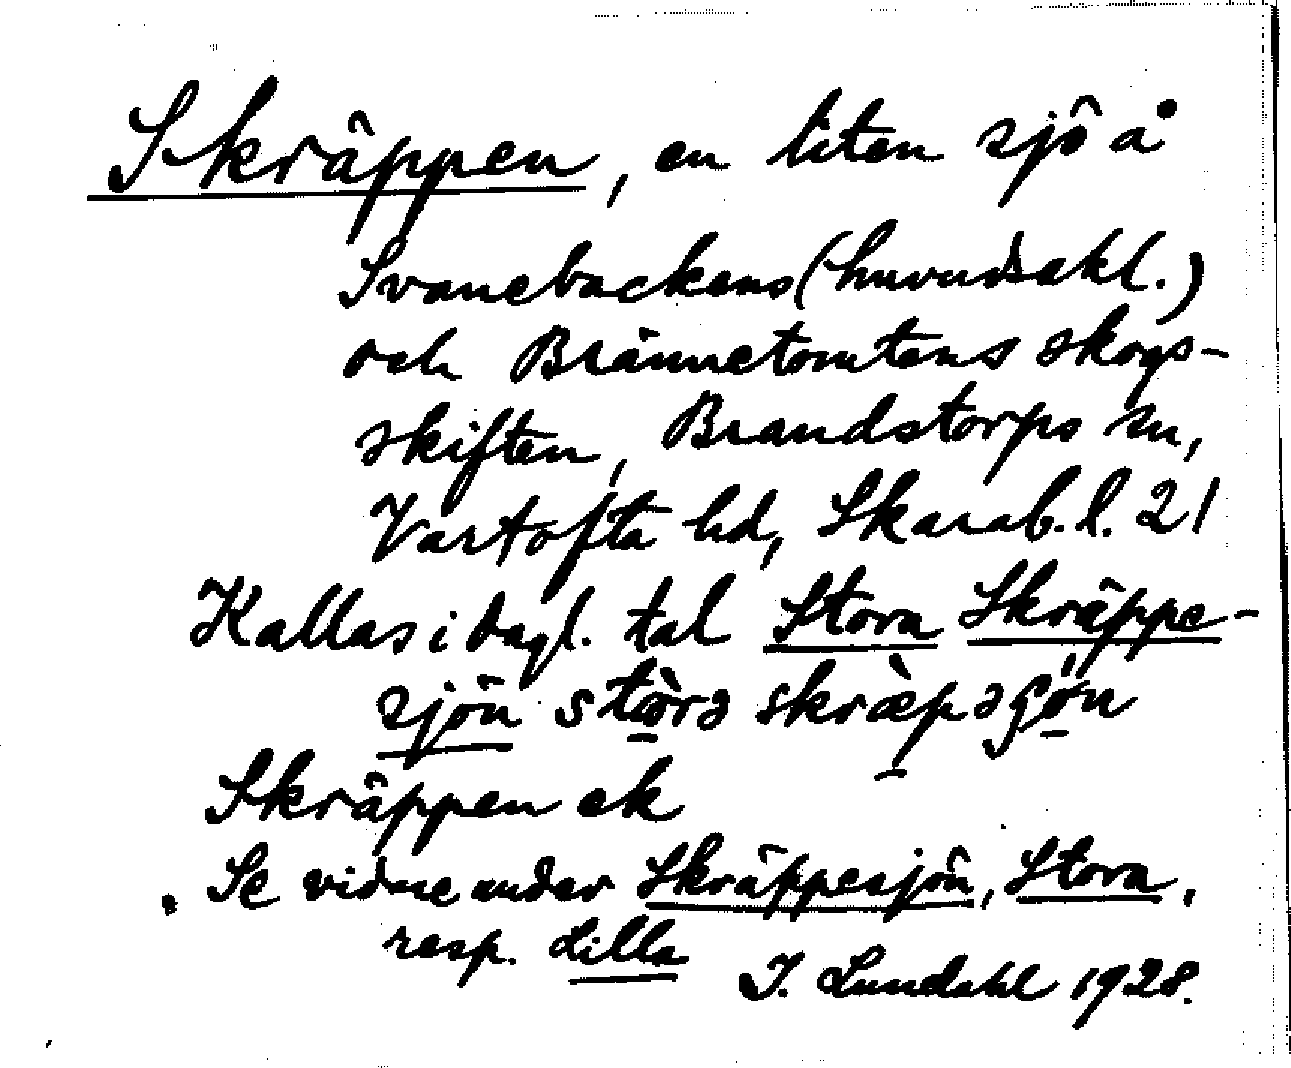 Skräppen, en liten sjö å
Svanebackens (huvudsakl.)
och Brännetomtens skogs-
skiften, Brandstorps sn,
Vartofta hd, Skarab. l. 21
Kallas i dagl. tal Stora Skräppe-
sjön stòrə skræ̀pəʃön
Skräppen ek
Se vidare under Skräppesjön, Stora,
resp. Lilla
I. Lundahl 1928.